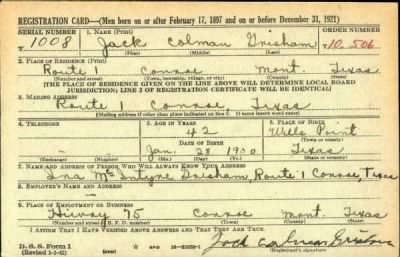 REGISTRATION CARD—(Men born on or after February 17, 1897 and on or before December 31, 1921)
SERIAL NUMBER 1. NAME (Print) ORDER NUMBER
1008 Jack Colman Grisham 10,506
(First) (Middle) (Last)
2. PLACE OF RESIDENCE (Print)
Route 1 Conroe Mont. Texas
(Number and street) (Town, township, village, or city) (County) (State)
[THE PLACE OF RESIDENCE GIVEN ON THE LINE ABOVE WILL DETERMINE LOCAL BOARD
JURISDICTION; LINE 2 OF REGISTRATION CERTIFICATE WILL BE IDENTICAL]
3. MAILING ADDRESS
Route 1 Conroe, Texas
[Mailing address if other than place indicated on line 2. If same insert word same]
4. TELEPHONE 5. AGE IN YEARS 6. PLACE OF BIRTH
42 Wills Point
DATE OF BIRTH (Town or county)
Jan. 28 1900 Texas
(Exchange) (Number) (Mo.) (Day) (Yr.) (State or country)
7. NAME AND ADDRESS OF PERSON WHO WILL ALWAYS KNOW YOUR ADDRESS
Ina McIntyre Grisham, Route 1 Conroe, Texas
8. EMPLOYER'S NAME AND ADDRESS
9. PLACE OF EMPLOYMENT OR BUSINESS
Hiway 75 Conroe Mont. Texas
(Number and street or R. F. D. number) (Town) (County) (State)
I AFFIRM THAT I HAVE VERIFIED ABOVE ANSWERS AND THAT THEY ARE TRUE.
D. S. S. Form 1 GPO Jack Colman Grisham
(Revised 1-1-42) (Registrant's signature)